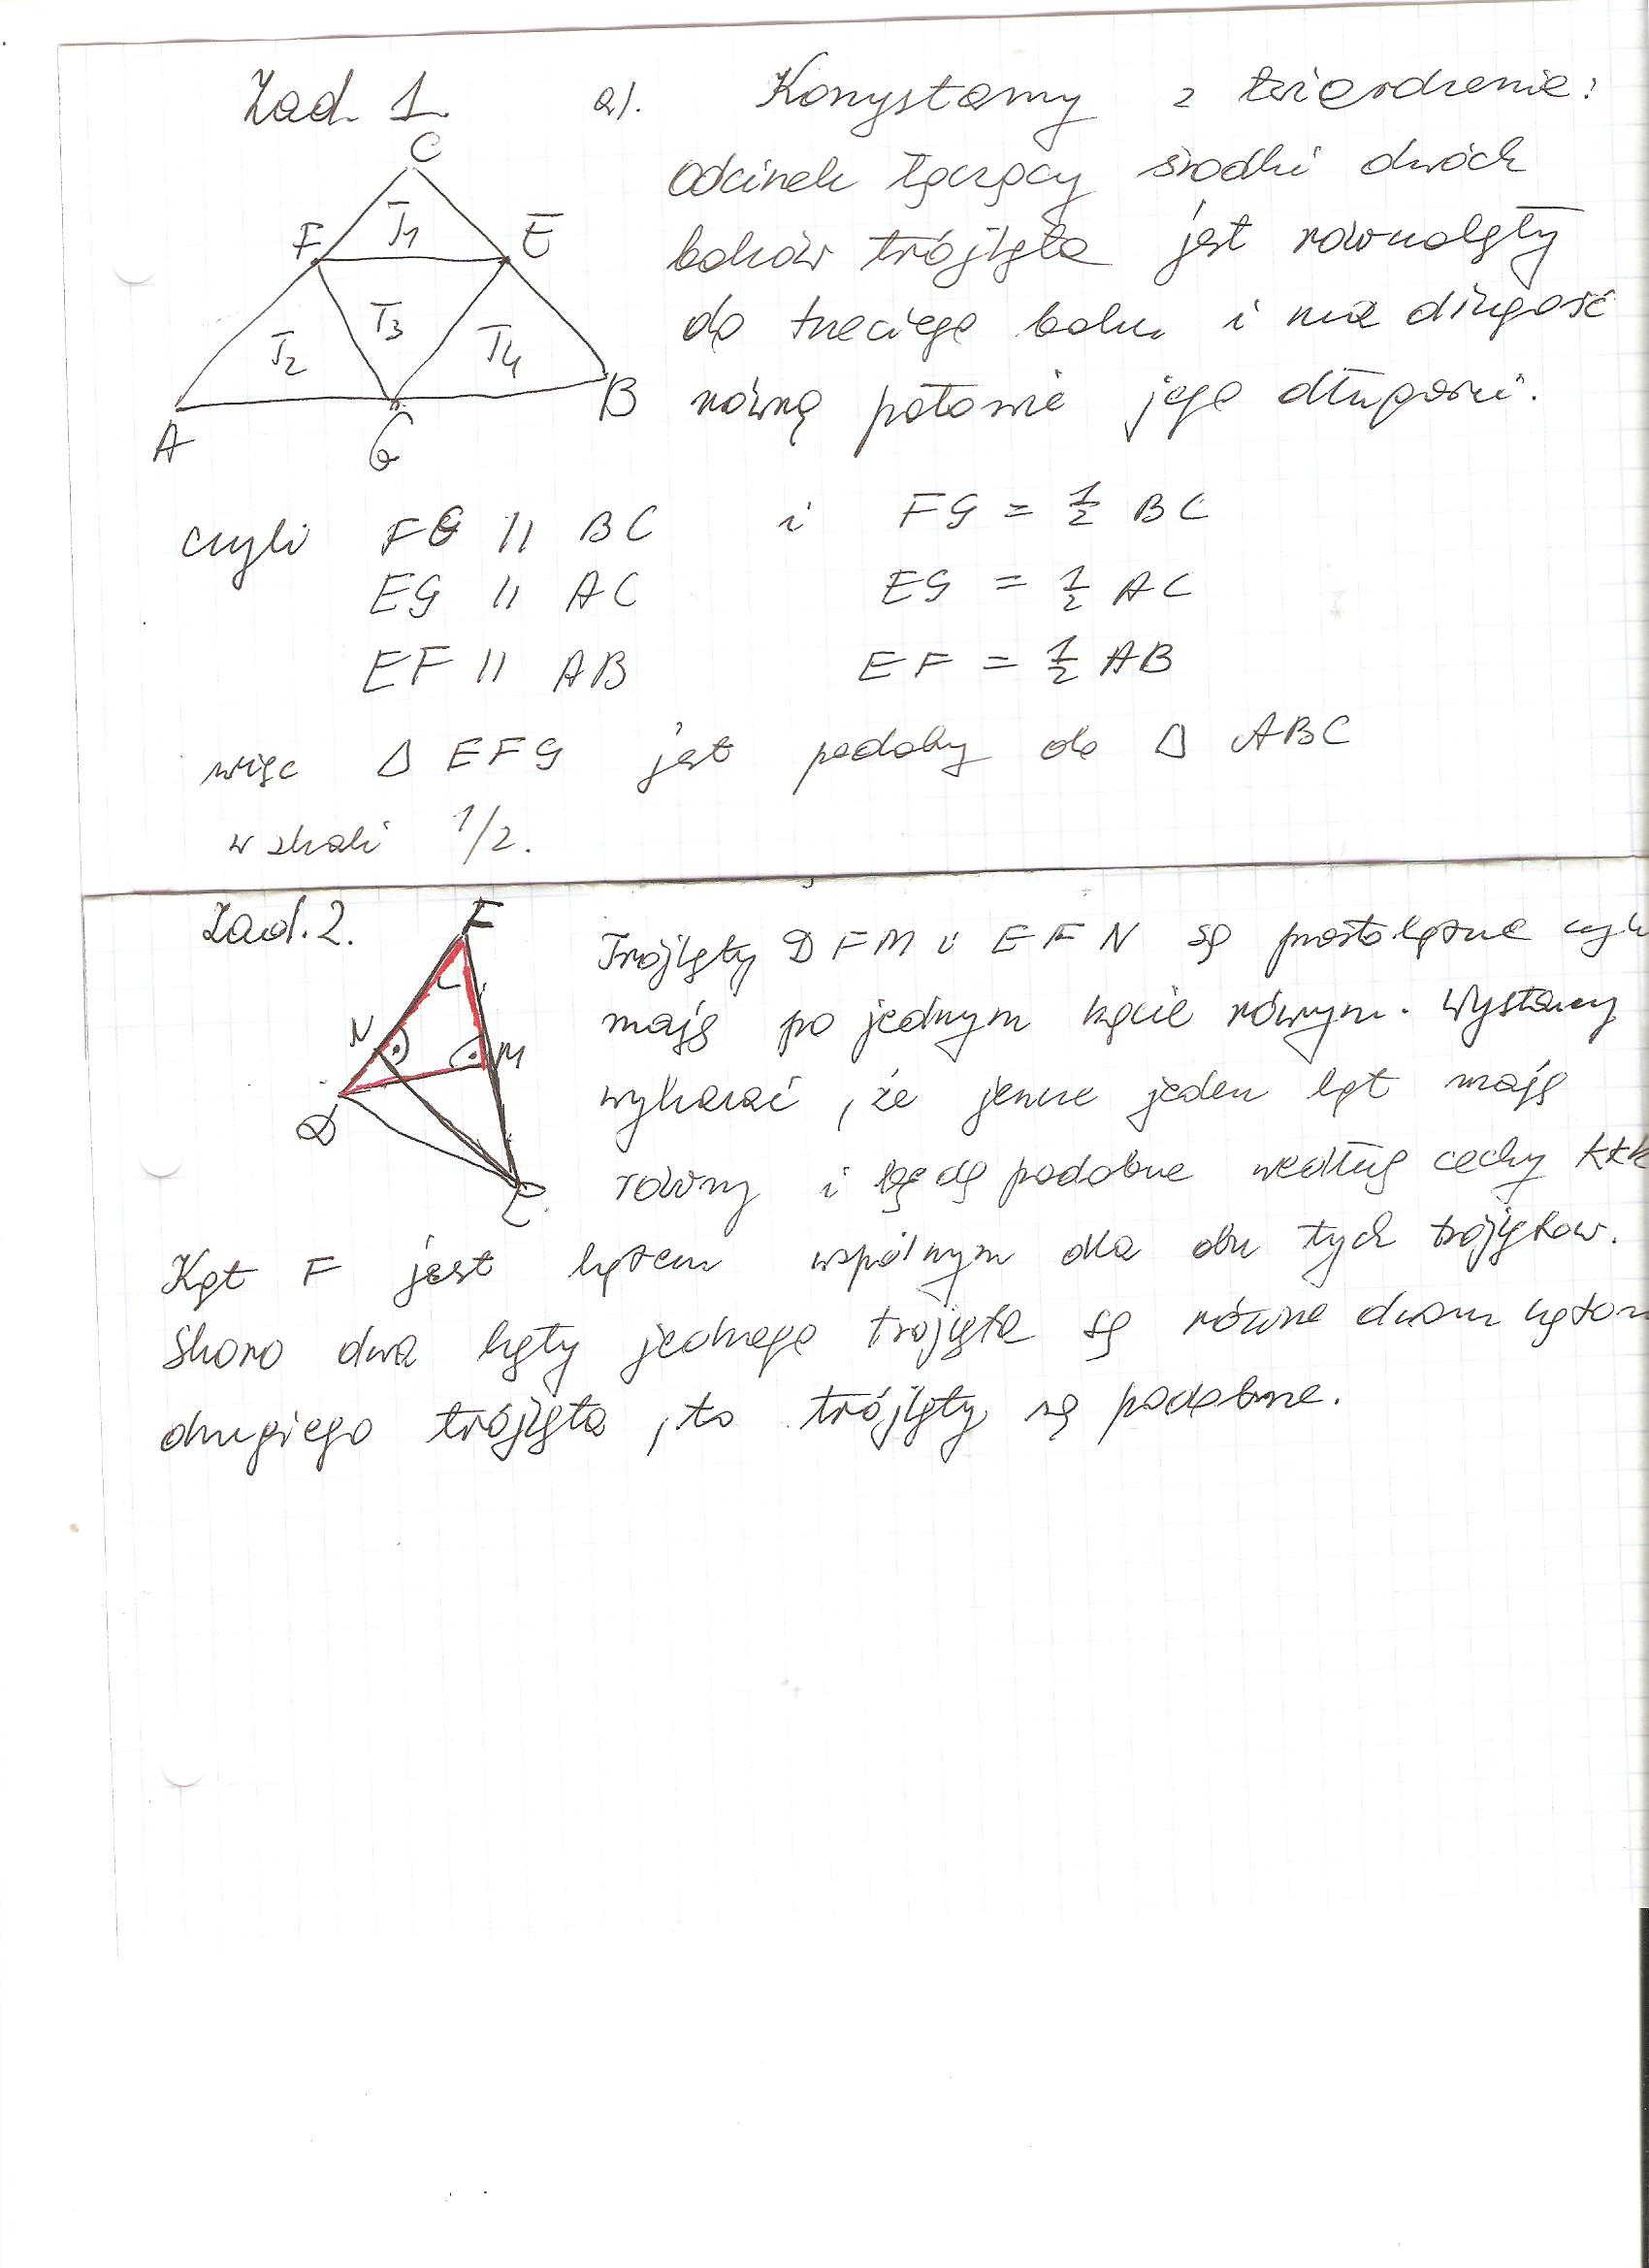 Zad. 1. a). Korzystamy z twierdzenia:
odcinek łączący środki dwóch
boków trójkąta jest równoległy
do trzeciego boku i ma długość
równą połowie jego długości.
C
F E
T1
T2 T3 T4
A G B
czyli FG || BC i FG = 1/2 BC
EG || AC EG = 1/2 AC
EF || AB EF = 1/2 AB
więc Δ EFG jest podoby do Δ ABC
w skali 1/2.
Zad. 2. Trójkąty DFM i EFN są prostokątne czyli
mają po jednym kącie równym. Wystarczy
wykazać, że jeszcze jeden kąt mają
równy i będą podobne według cechy kkk
F
N M
D
E
Kąt F jest kątem wspólnym dla obu tych trójkątów.
Skoro dwa kąty jednego trójkąta są równe dwom kątom
drugiego trójkąta, to trójkąty są podobne.